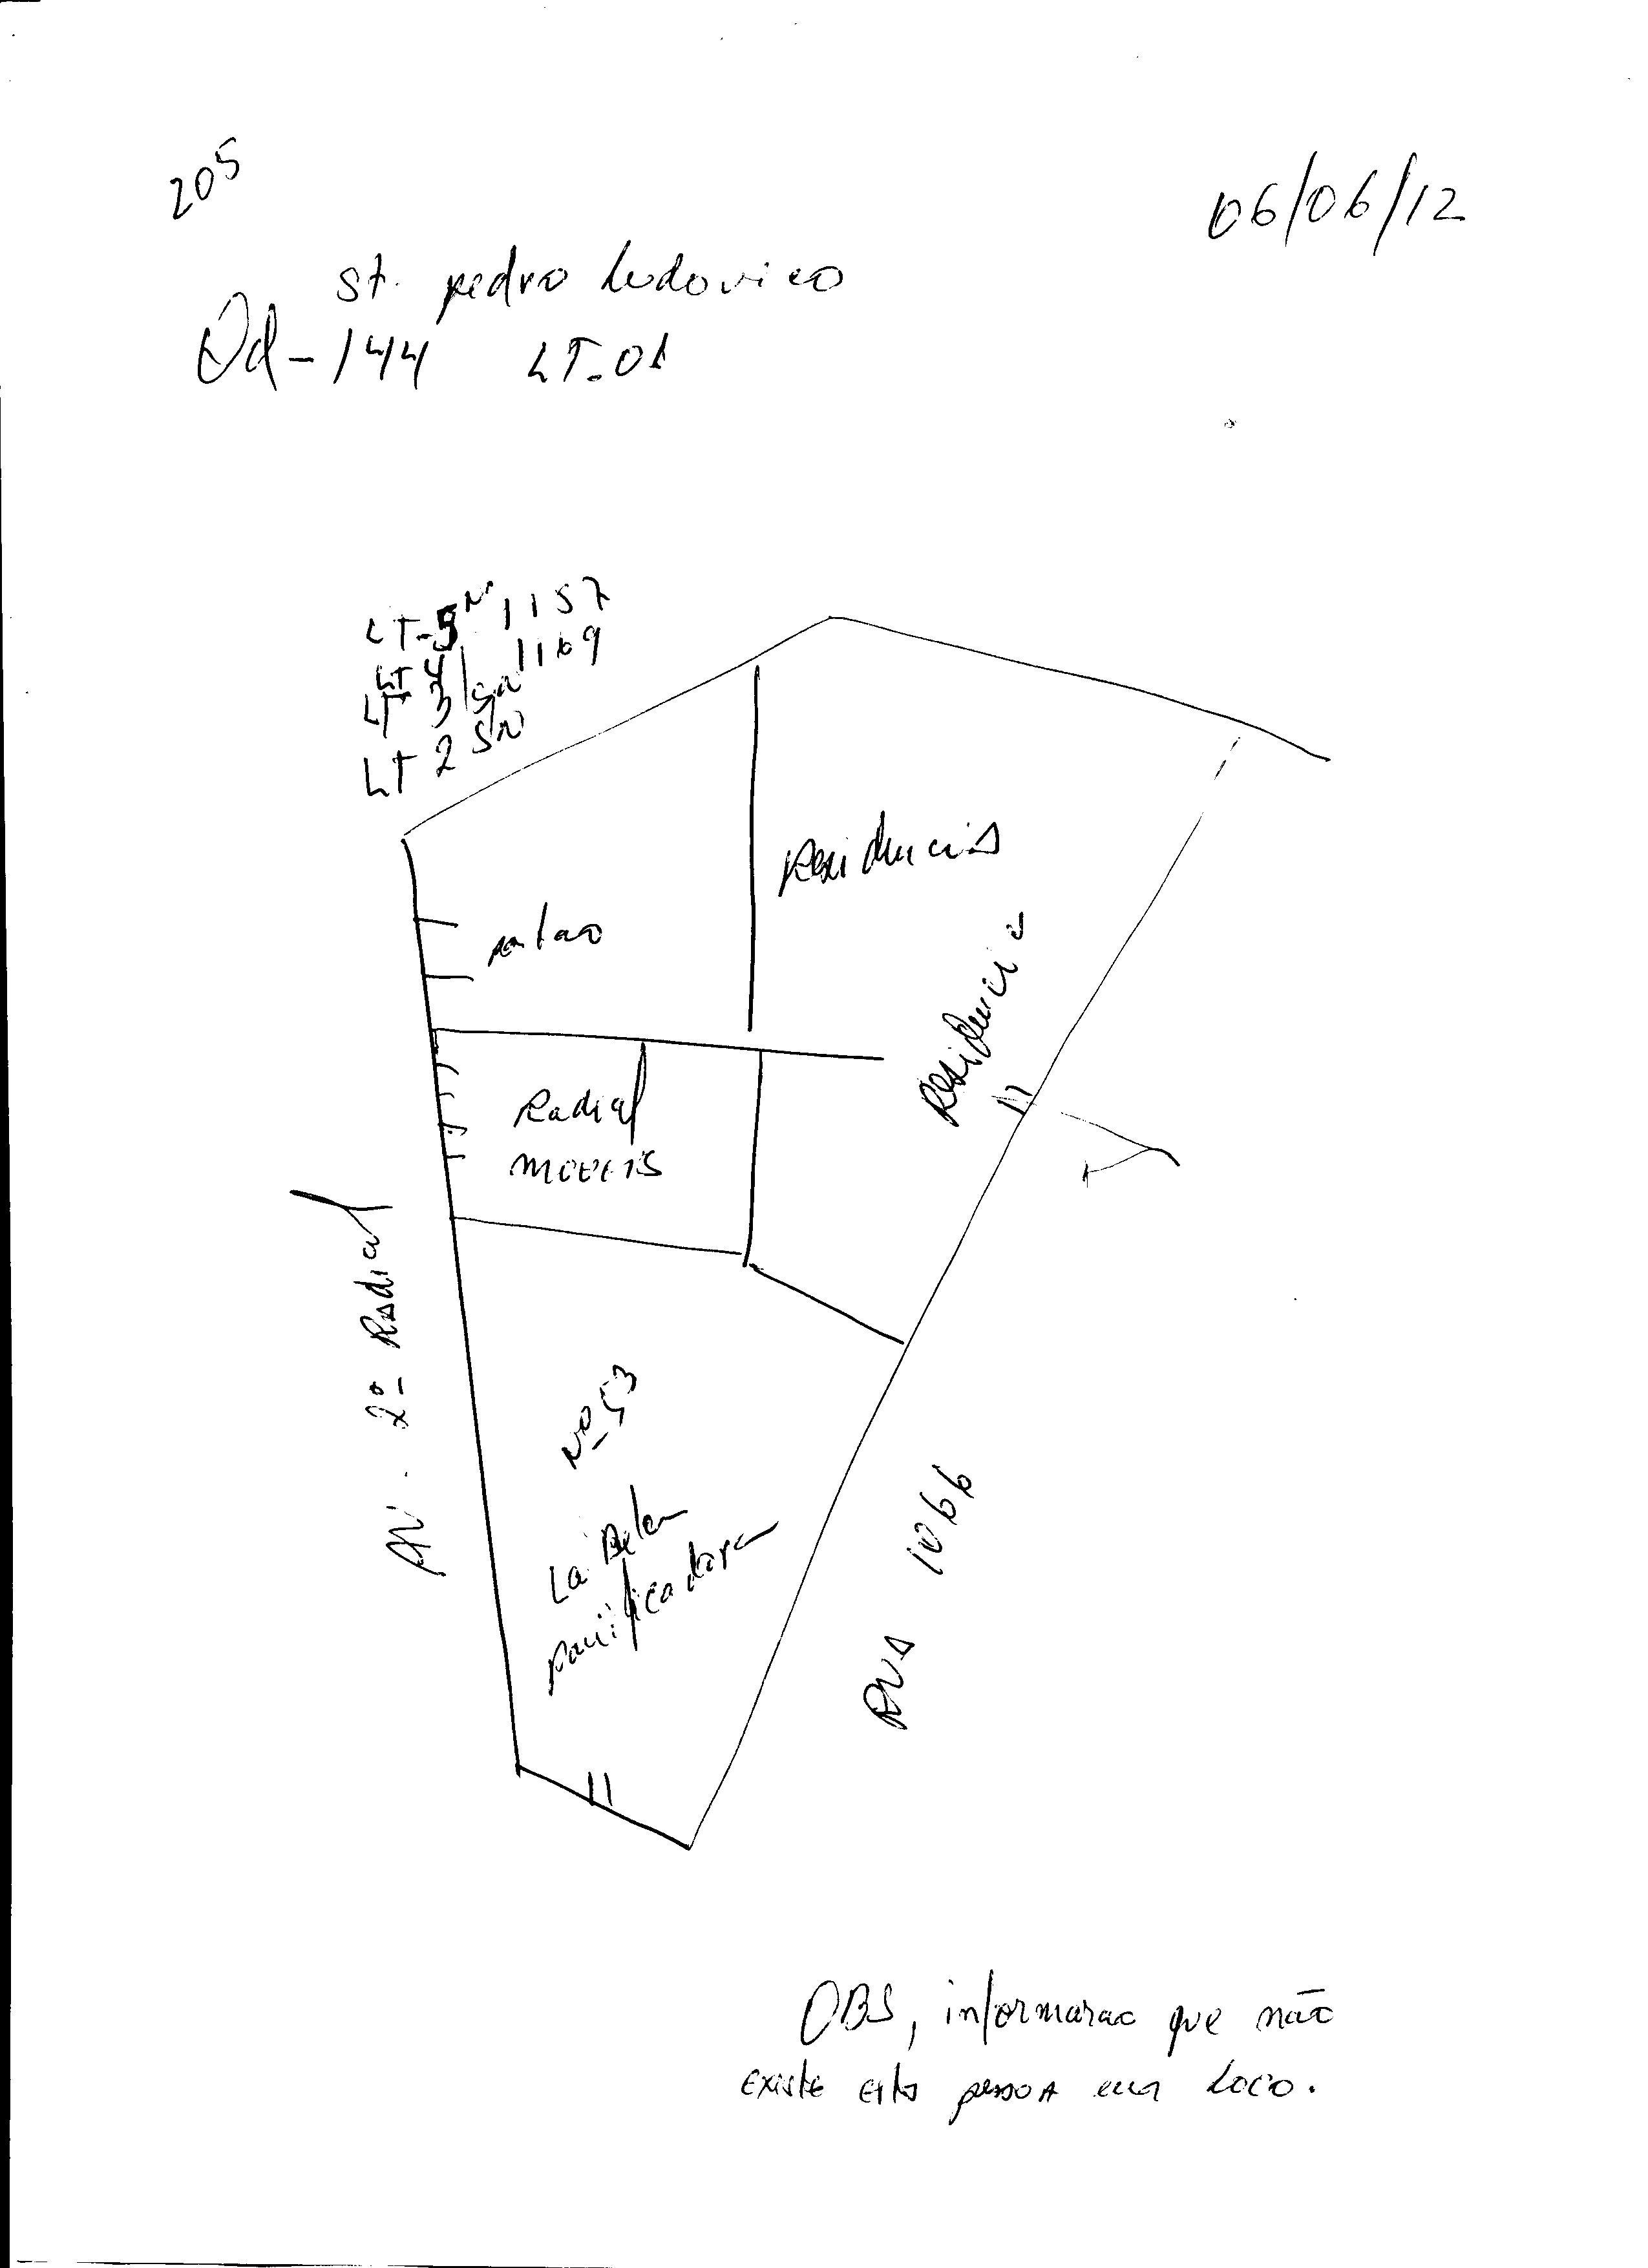 205
06/06/12
St. pedro Ludovico
Qd-144 LT-01
LT-5 Nº 1157
LT 4 1169
LT 3 SN
LT 2 SN
Residencia
Residencia
Radial
moveis
AV. 2º Radial
Nº 53
La Belem
panificadora
RUA 1066
OBS, informarao que não
existe esta pessoa em Loco.